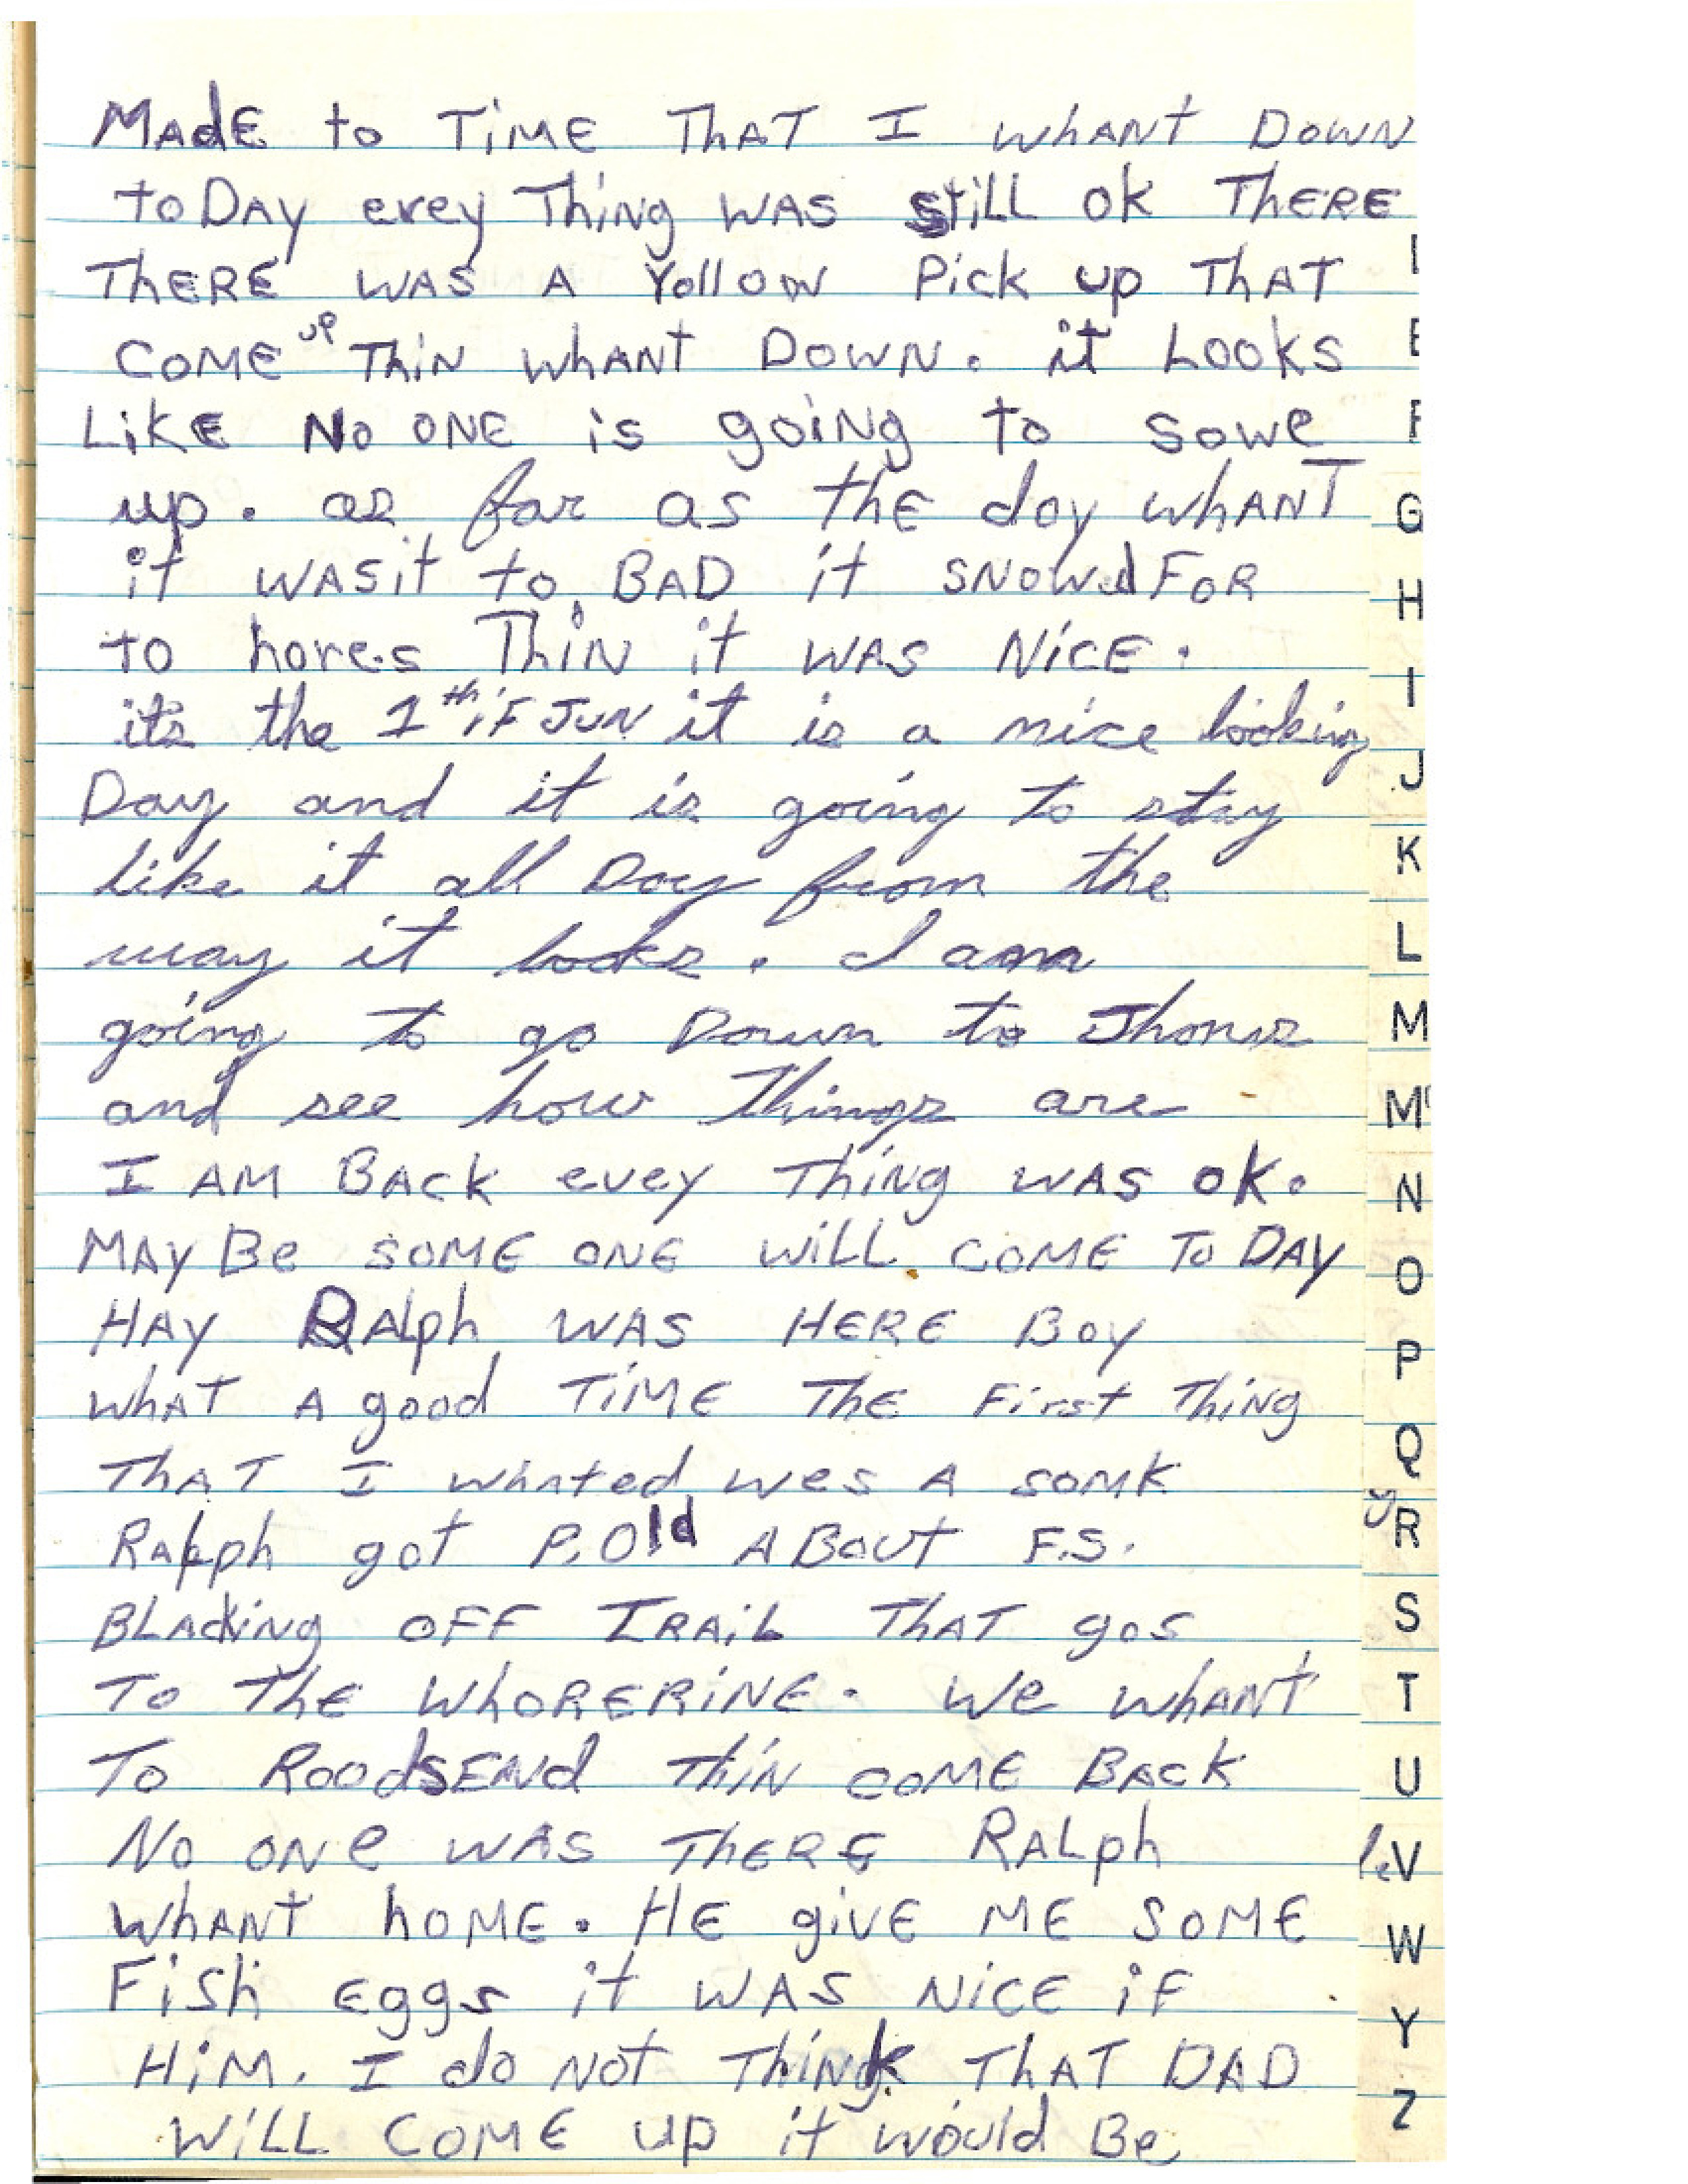 MAdE to TiME ThAT I whANT DOWN
toDAY erey Thing WAS still ok ThERE
ThERE WAS A Yollow Pick up ThAT
COME up ThiN whANT DOWN. it LOOKS
LiKE No ONE is goiNg to sowe
up. as far as thE doy whANT
it WASit to BAD it SNOWed FOR
to hores ThiN it WAS NiCE.
its the 1th iF JUN it is a nice looking
Day and it is going to stay
like it all Day from the
way it looks. I am
going to go Down to Jhons
and see how Things are
I AM BACK evey ThiNg WAS ok.
MAY Be SOME ONE WiLL COME To DAY
HAY RAlph WAS HERE BOY
whAT A good TiME ThE First ThiNg
ThAT I whnted wes A SOMK
RAlph got P.Old ABout F.S.
BLAding OFF TRAiL ThAT gos
To ThE WhORERiNE. We whANT
To RoodsENd thiN COME BACK
No ONe WAS ThERE RALph
whANT hOME. HE giVE ME SOME
Fish Eggs it WAS NiCE iF
HiM. I do NOt ThiNk ThAT DAD
WiLL COME up it would Be
I
E
F
G
H
I
J
K
L
M
M
N
O
P
Q
R
S
T
U
V
W
Y
Z